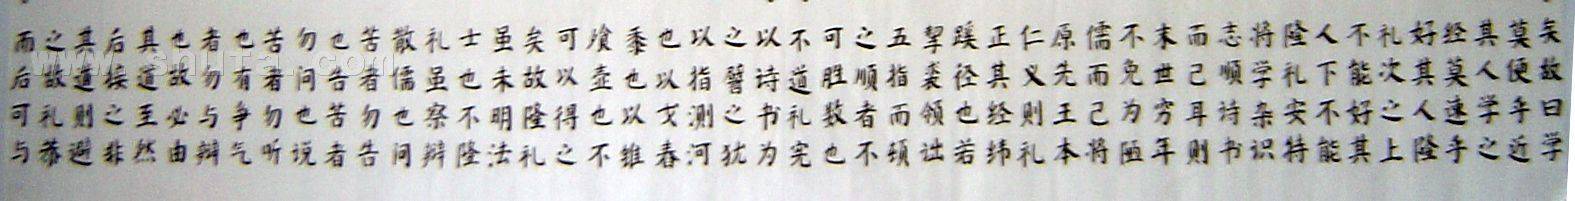 矣故曰学
莫便乎近
其人学之
经莫速乎
好其人隆
礼次之上
不能好其
人下不能
隆礼安特
将学杂识
志顺诗书
而已耳则
末世穷年
不免为陋
儒而已将
原先王本
仁义则礼
正其经纬
蹊径也若
挈裘领诎
五指而顿
之顺者不
可胜数也
不道礼宪
以诗书为
之譬之犹
以指测河
也以戈舂
黍也以锥
飡壶也不
可以得之
矣故隆礼
虽未明法
士也不隆
礼虽察辩
散儒也问
苦者勿告
也告苦者
勿问也说
苦者勿听
也有争气
者勿与辩
也故必由
其道至然
后接之非
其道则避
之故礼恭
而后可与